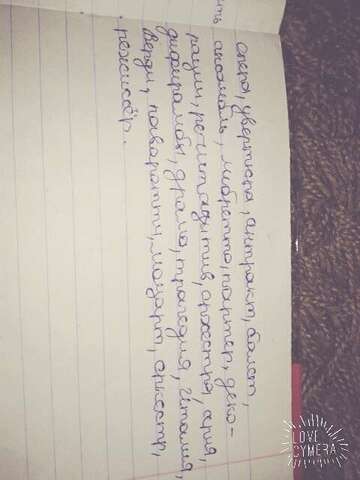 опера, увертюра, антракт, балет,
ить ансамбль, либретто, партер, деко-
рации, речитацитив, орхестра, ария,
дифирамбы, драма, трагедия, Италия,
Верди, паваротти, моцарт, оркестр,
режиссёр.
LOVE
CYMERA